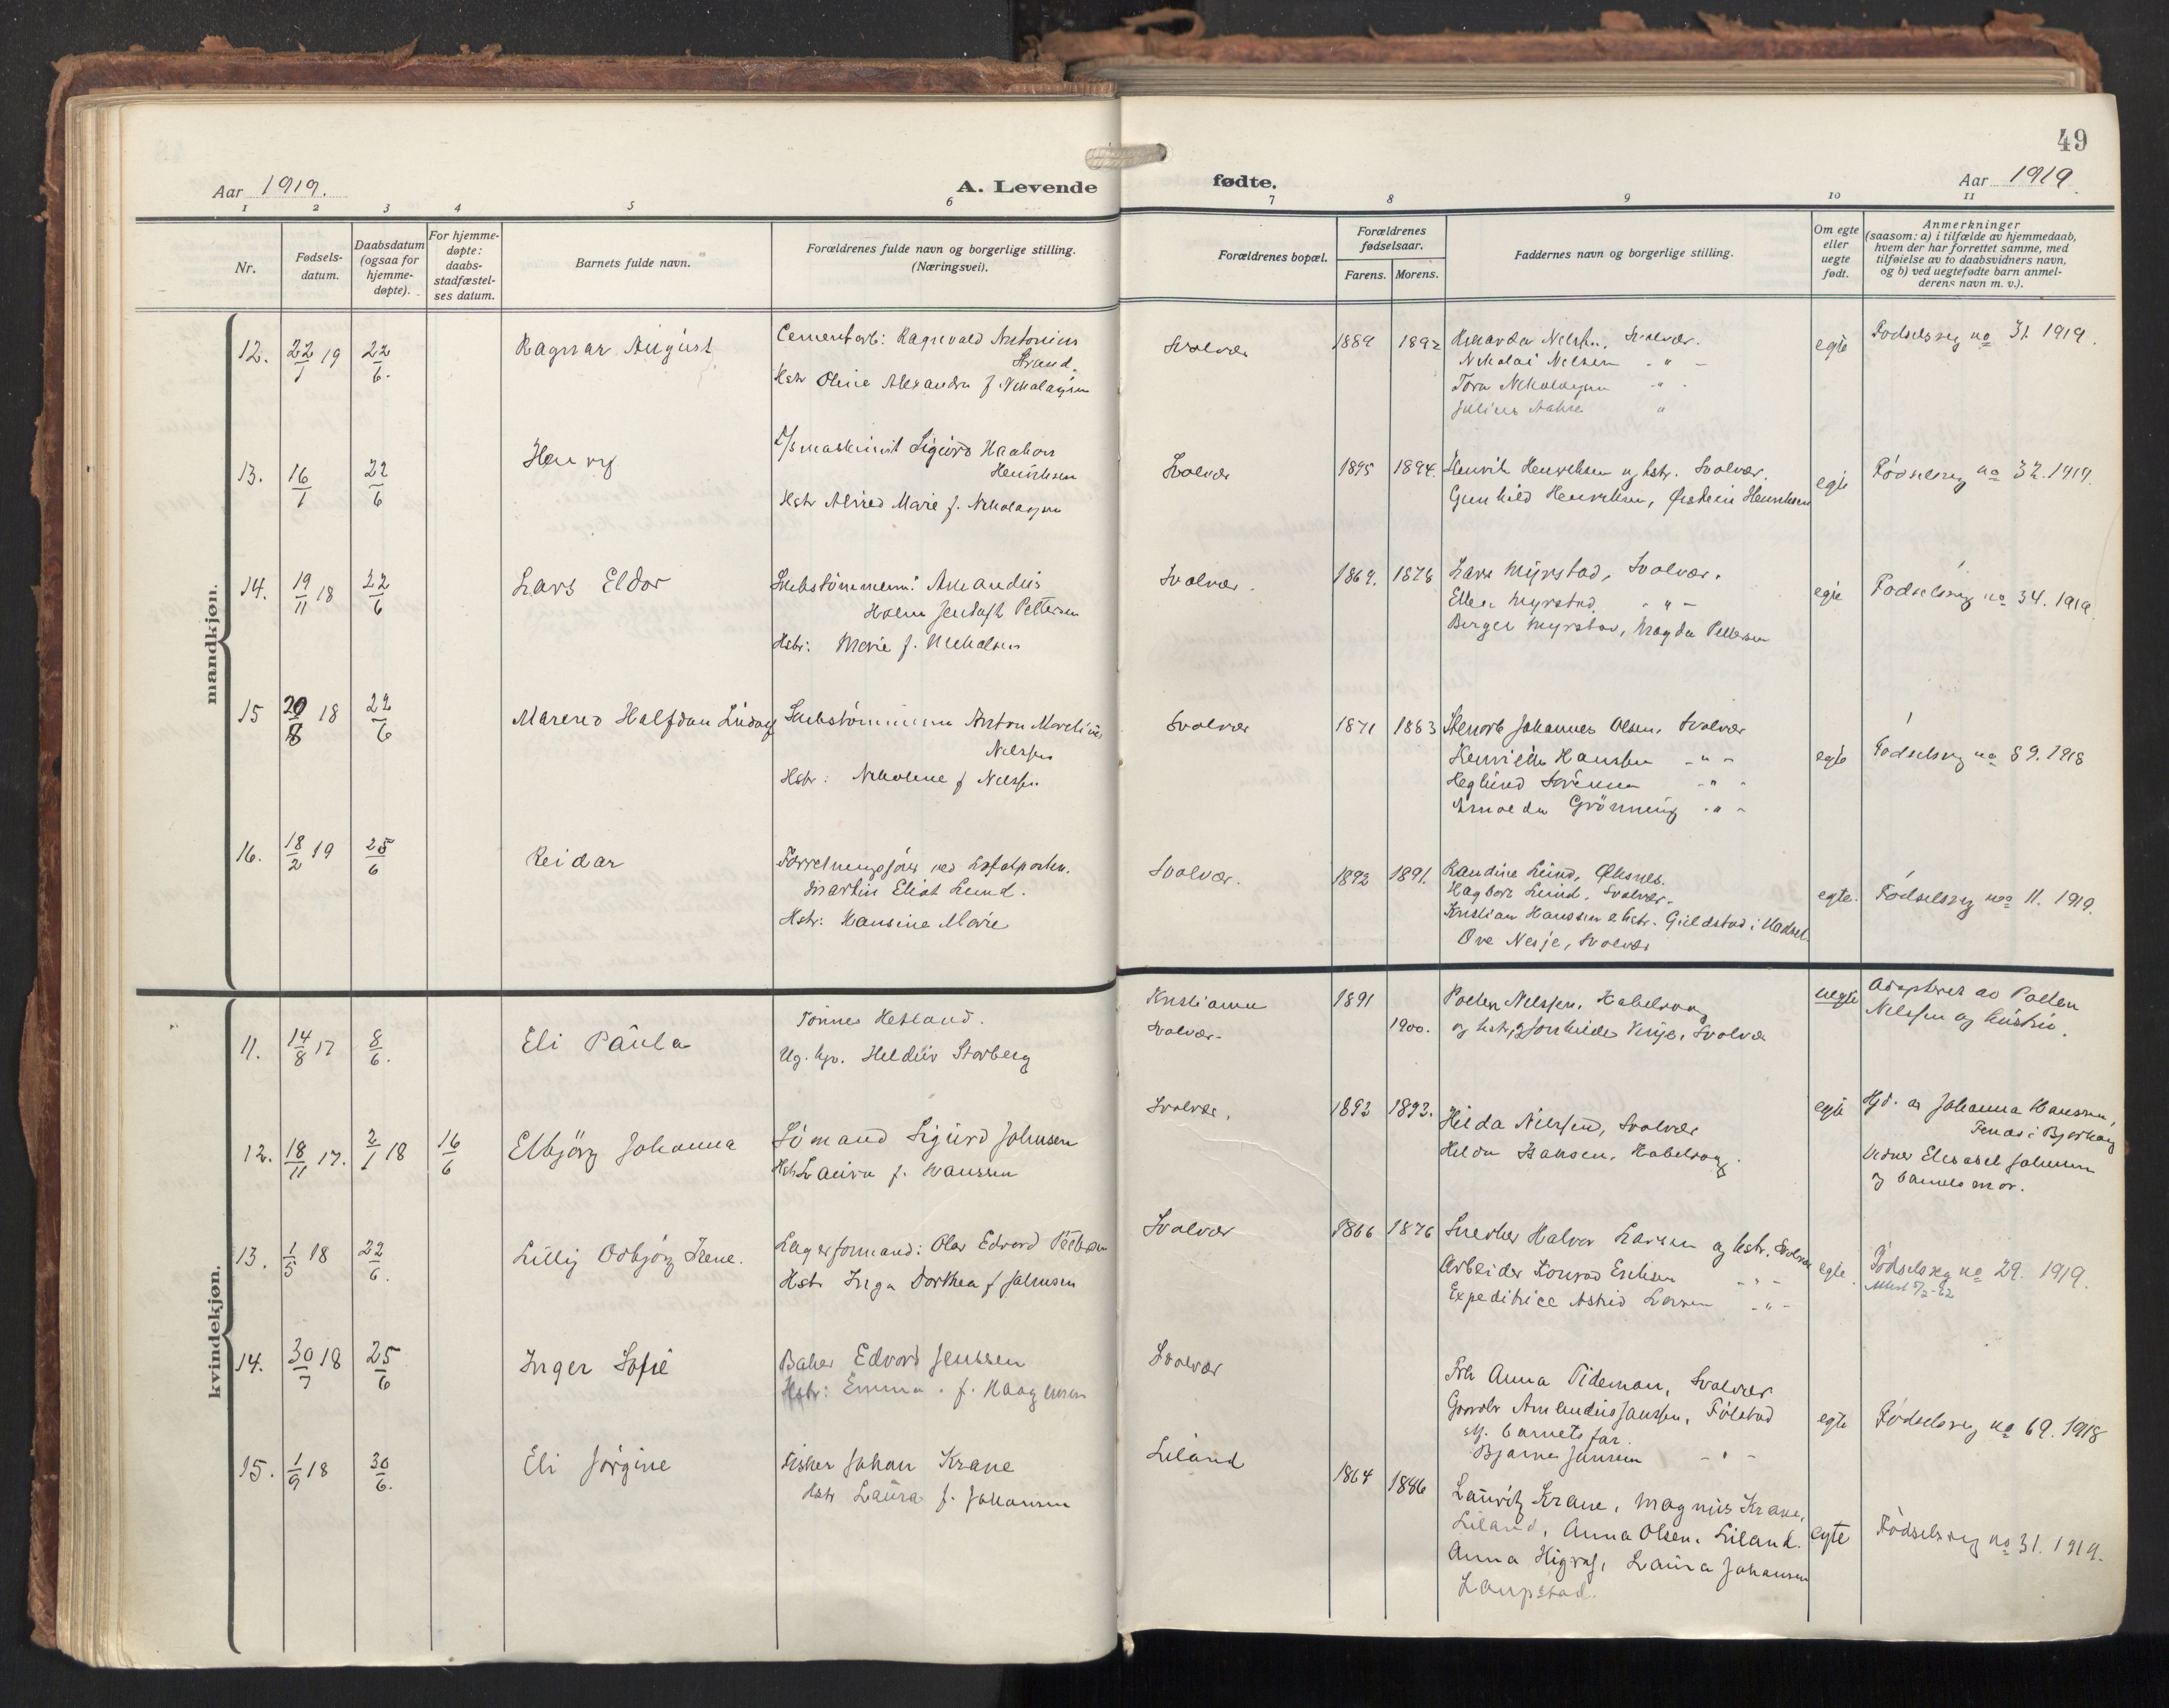 49
Aar 1919.
A. Levende
fødte.
Aar 1919.
1 2 3 4 5 6 7 8 9 10 11
Nr.
Fødsels-
datum.
Daabsdatum
(ogsaa for
hjemme-
døpte).
For hjemme-
døpte:
daabs-
stadfæstel-
ses datum.
Barnets fulde navn.
Forældrenes fulde navn og borgerlige stilling.
(Næringsvei).
Forældrenes bopæl.
Forældrenes
fødselsaar.
Farens. Morens.
Faddernes navn og borgerlige stilling.
Om egte
eller
uegte
født.
Anmerkninger
(saasom: a) i tilfælde av hjemmedaab,
hvem der har forrettet samme, med
tilføielse av to daabsvidners navn,
og b) ved uegtefødte barn anmel-
derens navn m. v.).
mandkjøn.
12. 22/1 19 22/6. Ragnar August
Cementarb: Ragnvald Antonius
Strand.
Hstr Oline Alexandra f. Nikolaysen
Svolvær 1889 1892
Nelsen, Svolvær.
Nikolai Nelsen - " -
Tora Nikolaysen - " -
Julius "
egte Fødselsreg no 31. 1919.
13. 16/1 22/6 Henry
D/smaskinist Sigurd Haakon
Henriksen
Hstr Marie f. Nikolaysen
Svolvær 1895 1894.
Henrik Henriksen og hstr. Svolvær.
Gunhild Henriksen, Henriksen
egte Fødselsreg no 32. 1919.
14. 19/11 18 22/6 Lars Eldor
Amandus
Holm Pettersen
Hstr: Marie f.
Svolvær. 1869. 1876
Lars Myrstad, Svolvær.
Ellen Myrstad, - " -
Birger Myrstad, Magda Pettersen
egte Fødselsreg no 34. 1919.
15 20/8 18 22/6 Halfdan Ludvig
Anton
Nelssen
Hstr: Nikoline f Nelssen
Svolvær 1871 1883
Johannes Olsen, Svolvær
Hanssen - " -
- " -
Grönning - " -
egte Fødselsreg no 89. 1918
16. 18/2 19 25/6 Reidar
Forretningsfører ved Lofotposten.
Martin Eliot Lund.
Hstr: Hansine Marie
Svolvær. 1892 1891.
Randine Lund, Øksnes.
Hagbart Lund, Svolvær.
Kristian Hanssen & hstr. Gjeldstad i Hadsel.
Ove Nesje, Svolvær
egte. Fødselsreg no 11. 1919.
kvindekjøn.
11. 14/8 17 8/6. Eli Paula
Tønnes Hetland.
Ug. kv. Heldur Storberg
Kristiania
Svolvær.
1891
1900.
Nelssen, Kabelvaag
og hstr, Svolvær
uegte Adopteret av
Nelssen og hustru.
12. 18/11 17. 2/1 18 16/6 Elbjörg Johanna
Sömand Sigurd Johnsen
Hstr Laura f. Hanssen
Svolvær, 1892 1892.
Hilda Nilssen, Svolvær
Hilda Hansen, Kabelvaag.
egte Hjd. av Johanna Hanssen,
Johnsen
og barnets mor.
13. 1/5 18 22/6. Lilly Odbjörg Irene.
Lagerformand: Olav Edvard
Hstr Inga Dorthea f Johnsen
Svolvær 1866 1876
Snekker Halvor Larsen og hstr. Svolvær
Arbeider Konrad Eriksen - " -
Expeditrice Astrid Larsen - " -
egte. Fødselsreg no 29. 1919.
Attest 5/2-62
14. 30/7 18 25/6 Inger Sofie
Baker Edvard Jenssen
Hstr: Emma. f.
Svolvær
Frk Anna Tideman, Svolvær
Gaardbr Amandus Janssen, Følstad
barnets far.
Bjarne Jansen - " -
egte Fødselsreg no 69. 1918
15. 1/9 18 30/6. Eli Jørgine
Fisker Johan Krane
Hstr Laura f. Johansen
Liland 1864 1886
Lauritz Krane, Magnus Krane,
Liland, Anna Olsen, Liland.
Anna Higrav, Laura Johansen
Laupstad.
egte Fødselsreg no 31. 1919.